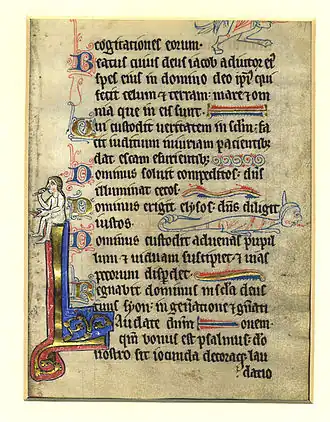 cogitationes eorum.
Beatus cuius deus iacob adiutor ei
spes eius in domino deo ipi qui
fecit celum et terram: mare et om
nia que in eis sunt.
Qui custodit veritatem in sclm: fa
cit iudicium iniuriam pacientib;
dat escam esurientib;
Dominus soluit compeditos: dns
illuminat cecos.
Dominus erigit elisos: dns diligit
iustos.
Dominus custodit aduenas pupil
lum et viduam suscipiet: et uias
peccorum disperdet.
Regnabit dominus in scla deus
tuus syon: in generatione et gnati
Laudate dnm onem.
qm bonus est psalmus: do
nostro sit iocunda decoraq; lau
datio